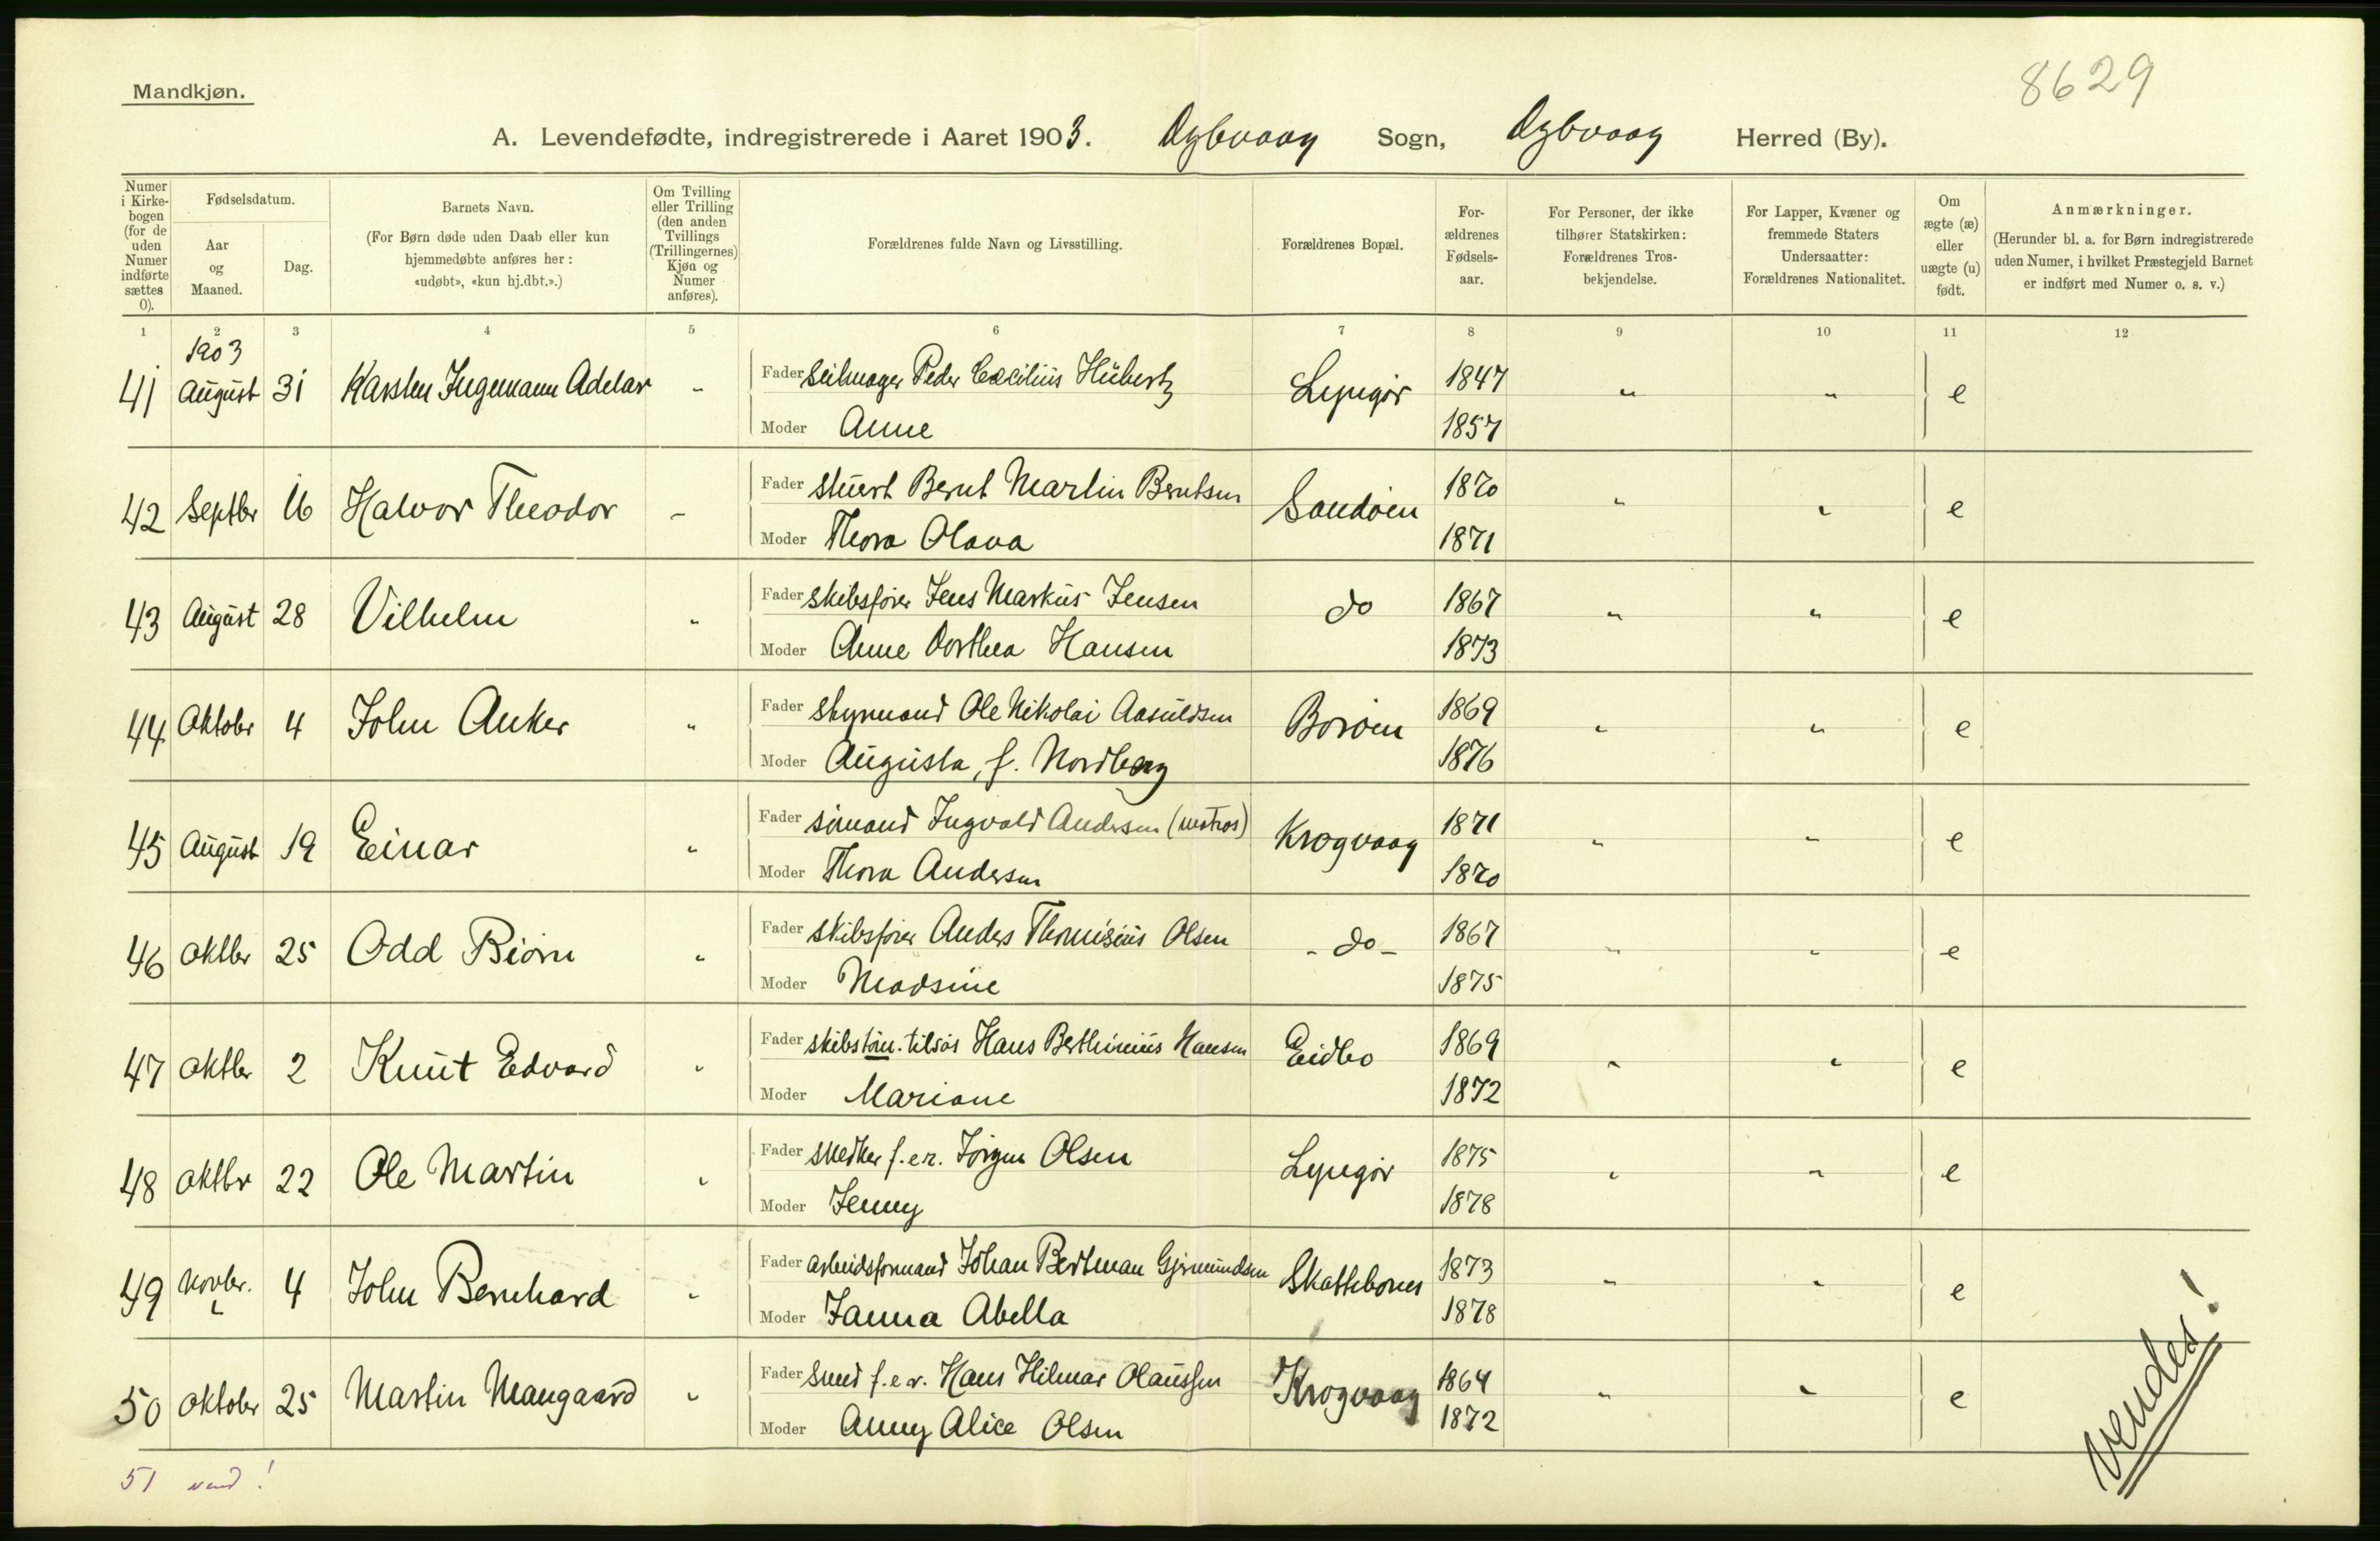 8629
Mandkjøn.
A. Levendefødte, indregistrerede i Aaret 1903. Dybvaag Sogn, Dybvaag Herred (By).
Numer i Kirkebogen (for de uden Numer indførte sættes 0).
Fødselsdatum.
Aar og Maaned.
Dag.
Barnets Navn.
(For Børn døde uden Daab eller kun hjemmedøbte anføres her: «udøbt», «kun hj.dbt.».)
Om Tvilling eller Trilling (den anden Tvillings (Trillingernes) Kjøn og Numer anføres).
Forældrenes fulde Navn og Livsstilling.
Forældrenes Bopæl.
Forældrenes Fødselsaar.
For Personer, der ikke tilhører Statskirken: Forældrenes Trosbekjendelse.
For Lapper, Kvæner og fremmede Staters Undersaatter: Forældrenes Nationalitet.
Om ægte (æ) eller uægte (u) født.
Anmærkninger.
(Herunder bl. a. for Børn indregistrerede uden Numer, i hvilket Præstegjeld Barnet er indført med Numer o. s. v.)
1 2 3 4 5 6 7 8 9 10 11 12
1903
41 August 31 Karsten Ingemann Adelar - Fader Seilmager Peder Cæcilius Hübertz Lyngør 1847 " " e
Moder Anne 1857
42 Septbr 16 Halvor Theodor - Fader Stuert Bernt Martin Berntsen Sandøen 1870 " " e
Moder Thora Olava 1871
43 August 28 Vilhelm " Fader Skibsfører Jens Markus Jensen do 1867 " " e
Moder Anne Dorthea Hansen 1873
44 Oktober 4 John Anker " Fader Styrmand Ole Nikolai Aasuldsen Borøen 1869 " " e
Moder Augusta, f. Nordberg 1876
45 August 19 Einar " Fader sømand Ingvald Andersen (matros) Krogvaag 1871 " " e
Moder Thora Andersen 1870
46 Oktbr 25 Odd Biørn " Fader Skibsfører Anders Thomisius Olsen - do - 1867 " " e
Moder Madsine 1875
47 Oktbr 2 Knut Edvard " Fader skibstøm. tilsøs Hans Berthinius Hansen Eidbo 1869 " " e
Moder Mariane 1872
48 Oktbr 22 Ole Martin " Fader snedker f.e.r. Jørgen Olsen Lyngør 1875 " " e
Moder Jenny 1878
49 Novbr. 4 John Bernhard " Fader Arbeidsformand Johan Bertman Gjermundsen Skattebones 1873 " " e
Moder Janna Abella 1878
50 Oktober 25 Martin Naugaard " Fader Smed f.e.r. Hans Hilmar Olaussen Krogvaag 1864 " " e
Moder Anny Alice Olsen 1872
51 vend!
Vendes!